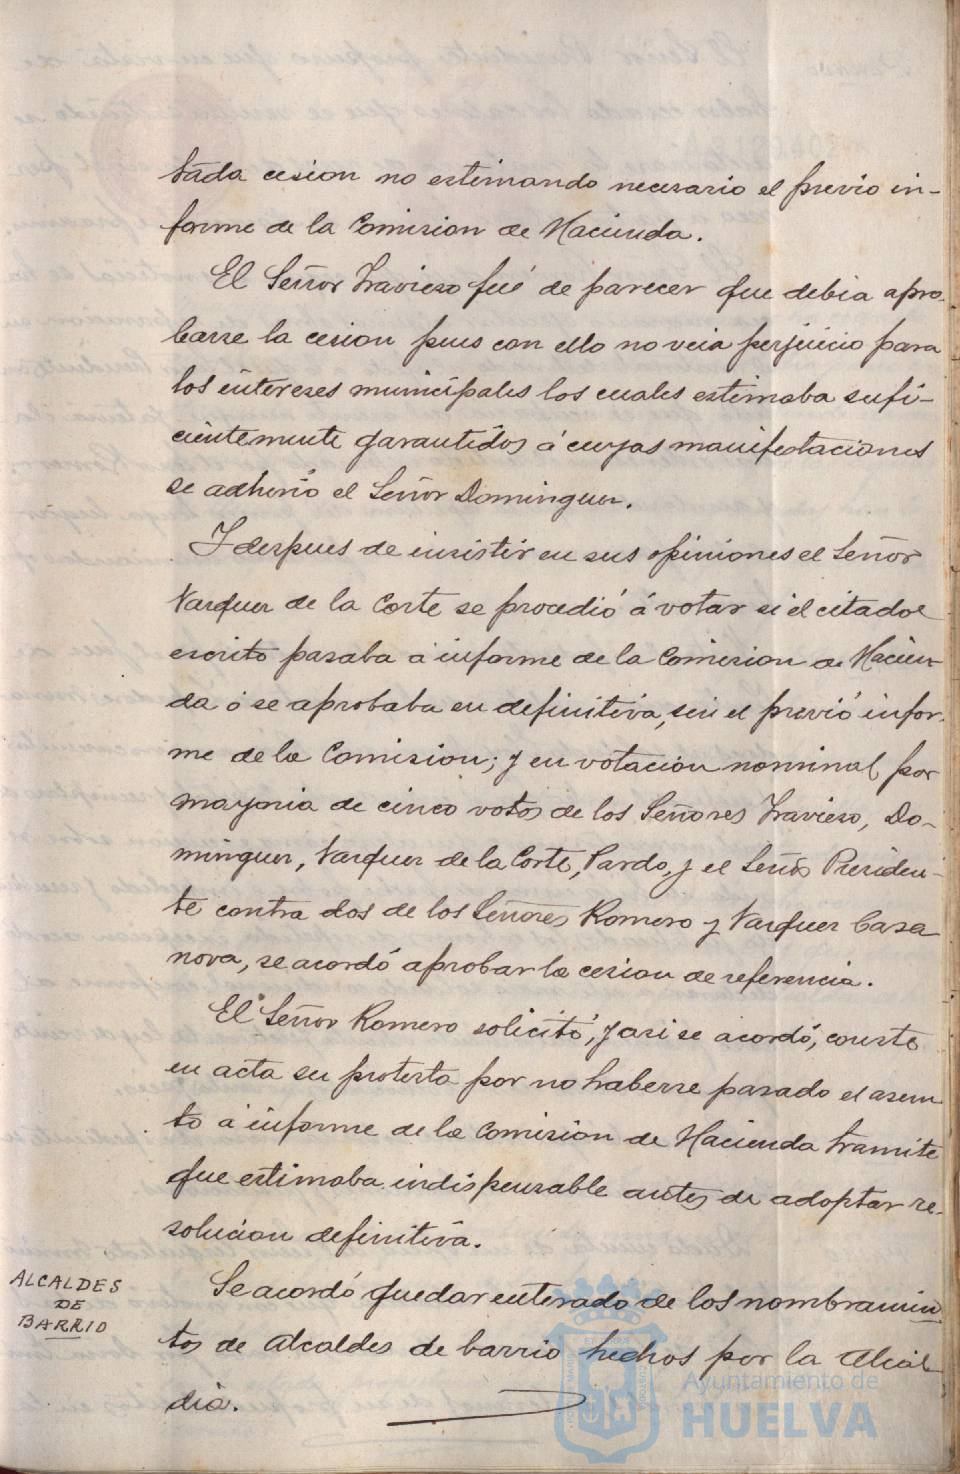 tada cesion no estimando necesario el previo in-
forme de la Comision de Hacienda.
El Señor Travieso fué de parecer que debia apro-
barse la cesion pues con ello no veia perjuicio para
los intereses municipales los cuales estimaba sufi-
cientemente garantidos á cuyas manifestaciones
se adherió el Señor Dominguez.
Y despues de insistir en sus opiniones el Señor
Vazquez de la Corte se procedió á votar si el citado
escrito pasaba á informe de la Comision de Hacien-
da ó se aprobaba en definitiva, sin el previo infor-
me de la Comision; y en votacion nominal, por
mayoria de cinco votos de los Señores Travieso, Do-
minguez, Vazquez de la Corte, Pardo, y el Señor Presiden-
te contra dos de los Señores Romero y Vazquez Casa
nova, se acordó aprobar la cesion de referencia.
El Señor Romero solicitó, y asi se acordó, conste
en acta su protesta por no haberse pasado el asun
to á informe de la Comision de Hacienda tramite
que estimaba indispensable antes de adoptar re-
solucion definitiva.
ALCALDES
DE
BARRIO
Se acordó quedar enterado de los nombramien
tos de Alcaldes de barrio hechos por la Alcal
dia.
Ayuntamiento de
HUELVA